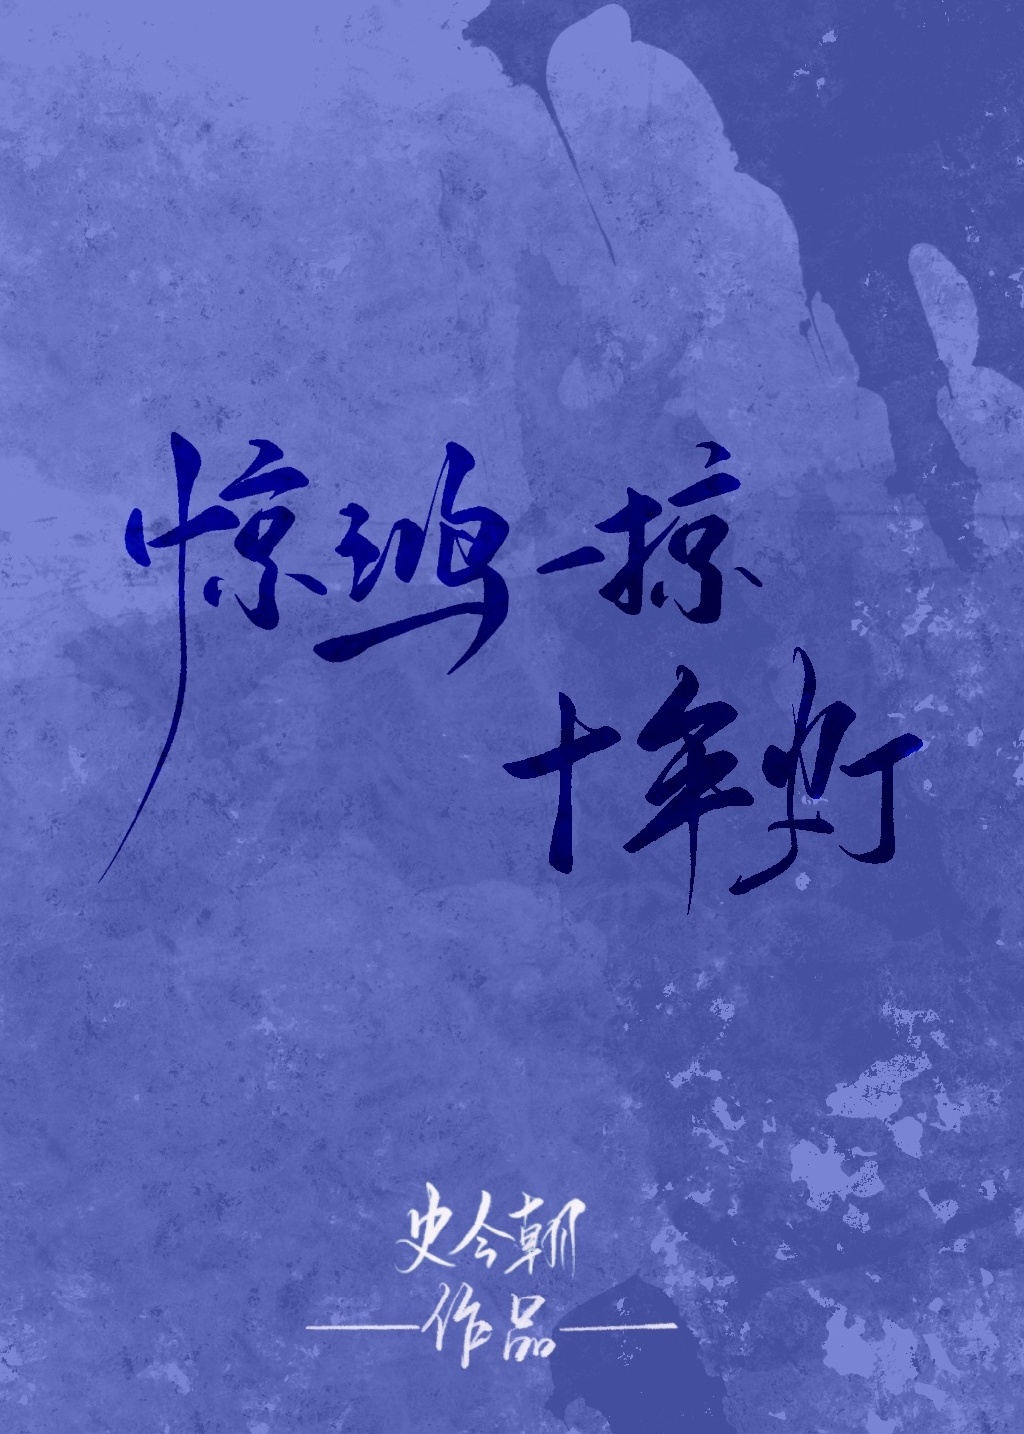 惊鸿一掠
十年灯
史今朝
作品